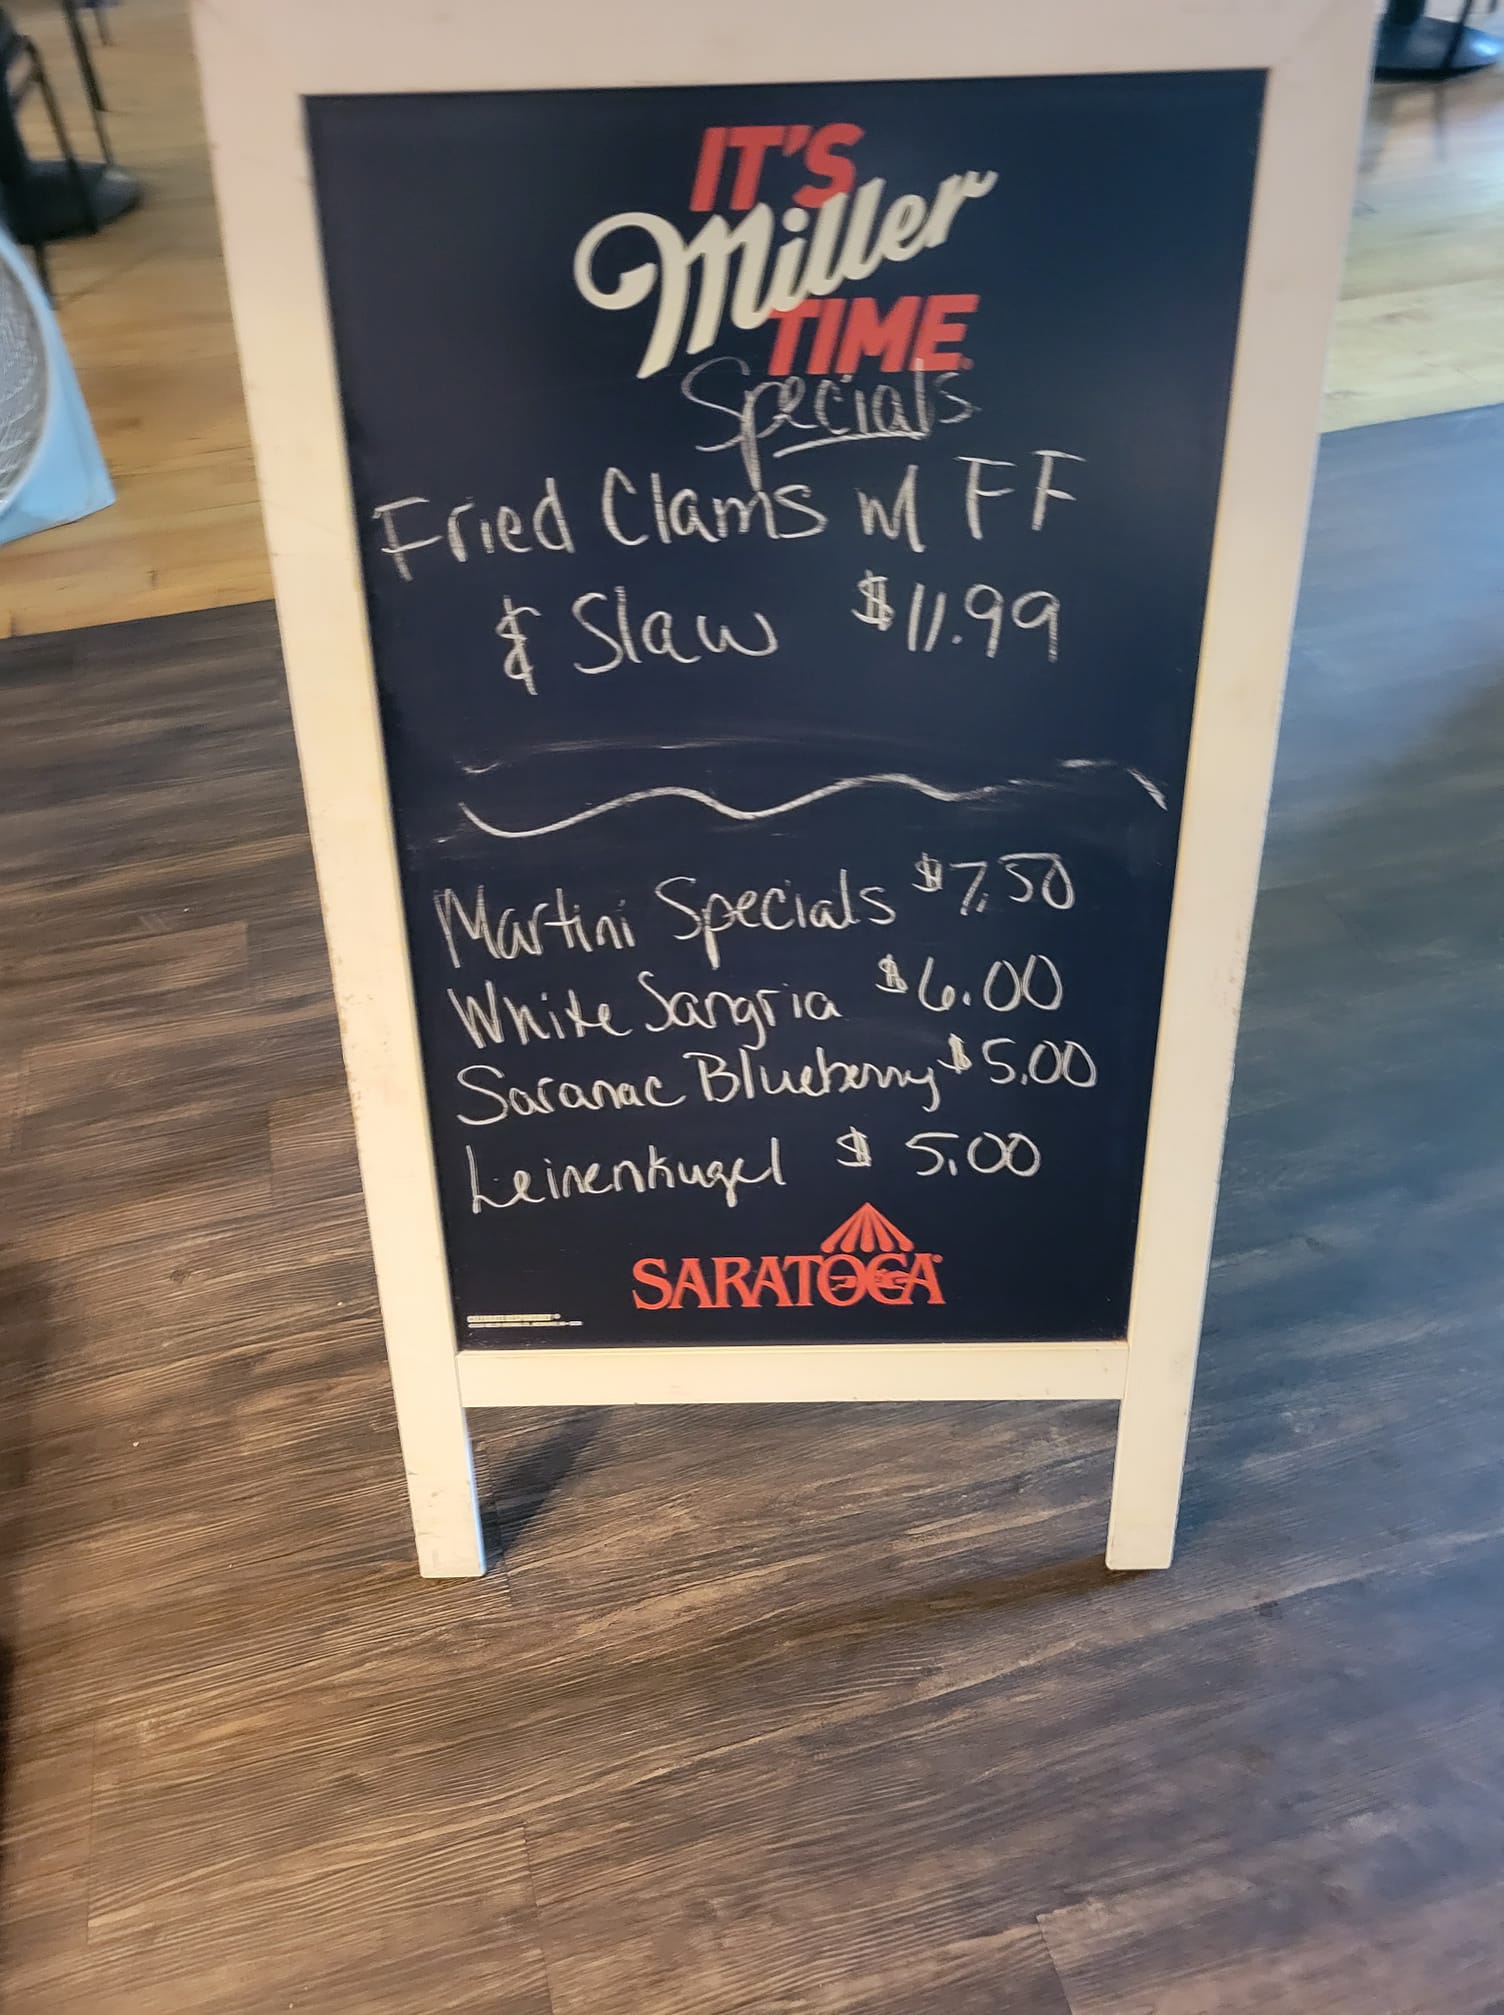 IT'S
Miller
TIME
Specials
Fried Clams w/ FF
& Slaw $11.99
Martini Specials $7.50
White Sangria $6.00
Saranac Blueberry $5.00
Leinenkugel $5.00
SARATOGA